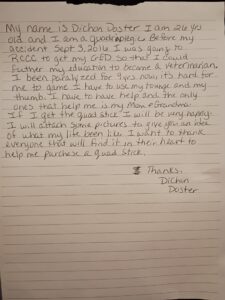 My name is Dichon Doster I am 26 years
old and I am a quadriplegic. Before my
accident Sept 3, 2016 I was going to
RCCC to get my GED so that I could
further my education to become a veterinarian.
I been paralyzed for 9yrs now it's hard for
me to game I have to use my tounge and my
thumb. I have to have help and the only
ones that help me is my Mom & Grandma
If I get the quad stick I will be very happy.
I will attach some pictures to give you an idea
of what my life been like. I want to thank
everyone that will find it in their heart to
help me purchase a quad Stick.
Thanks,
Dichon
Doster